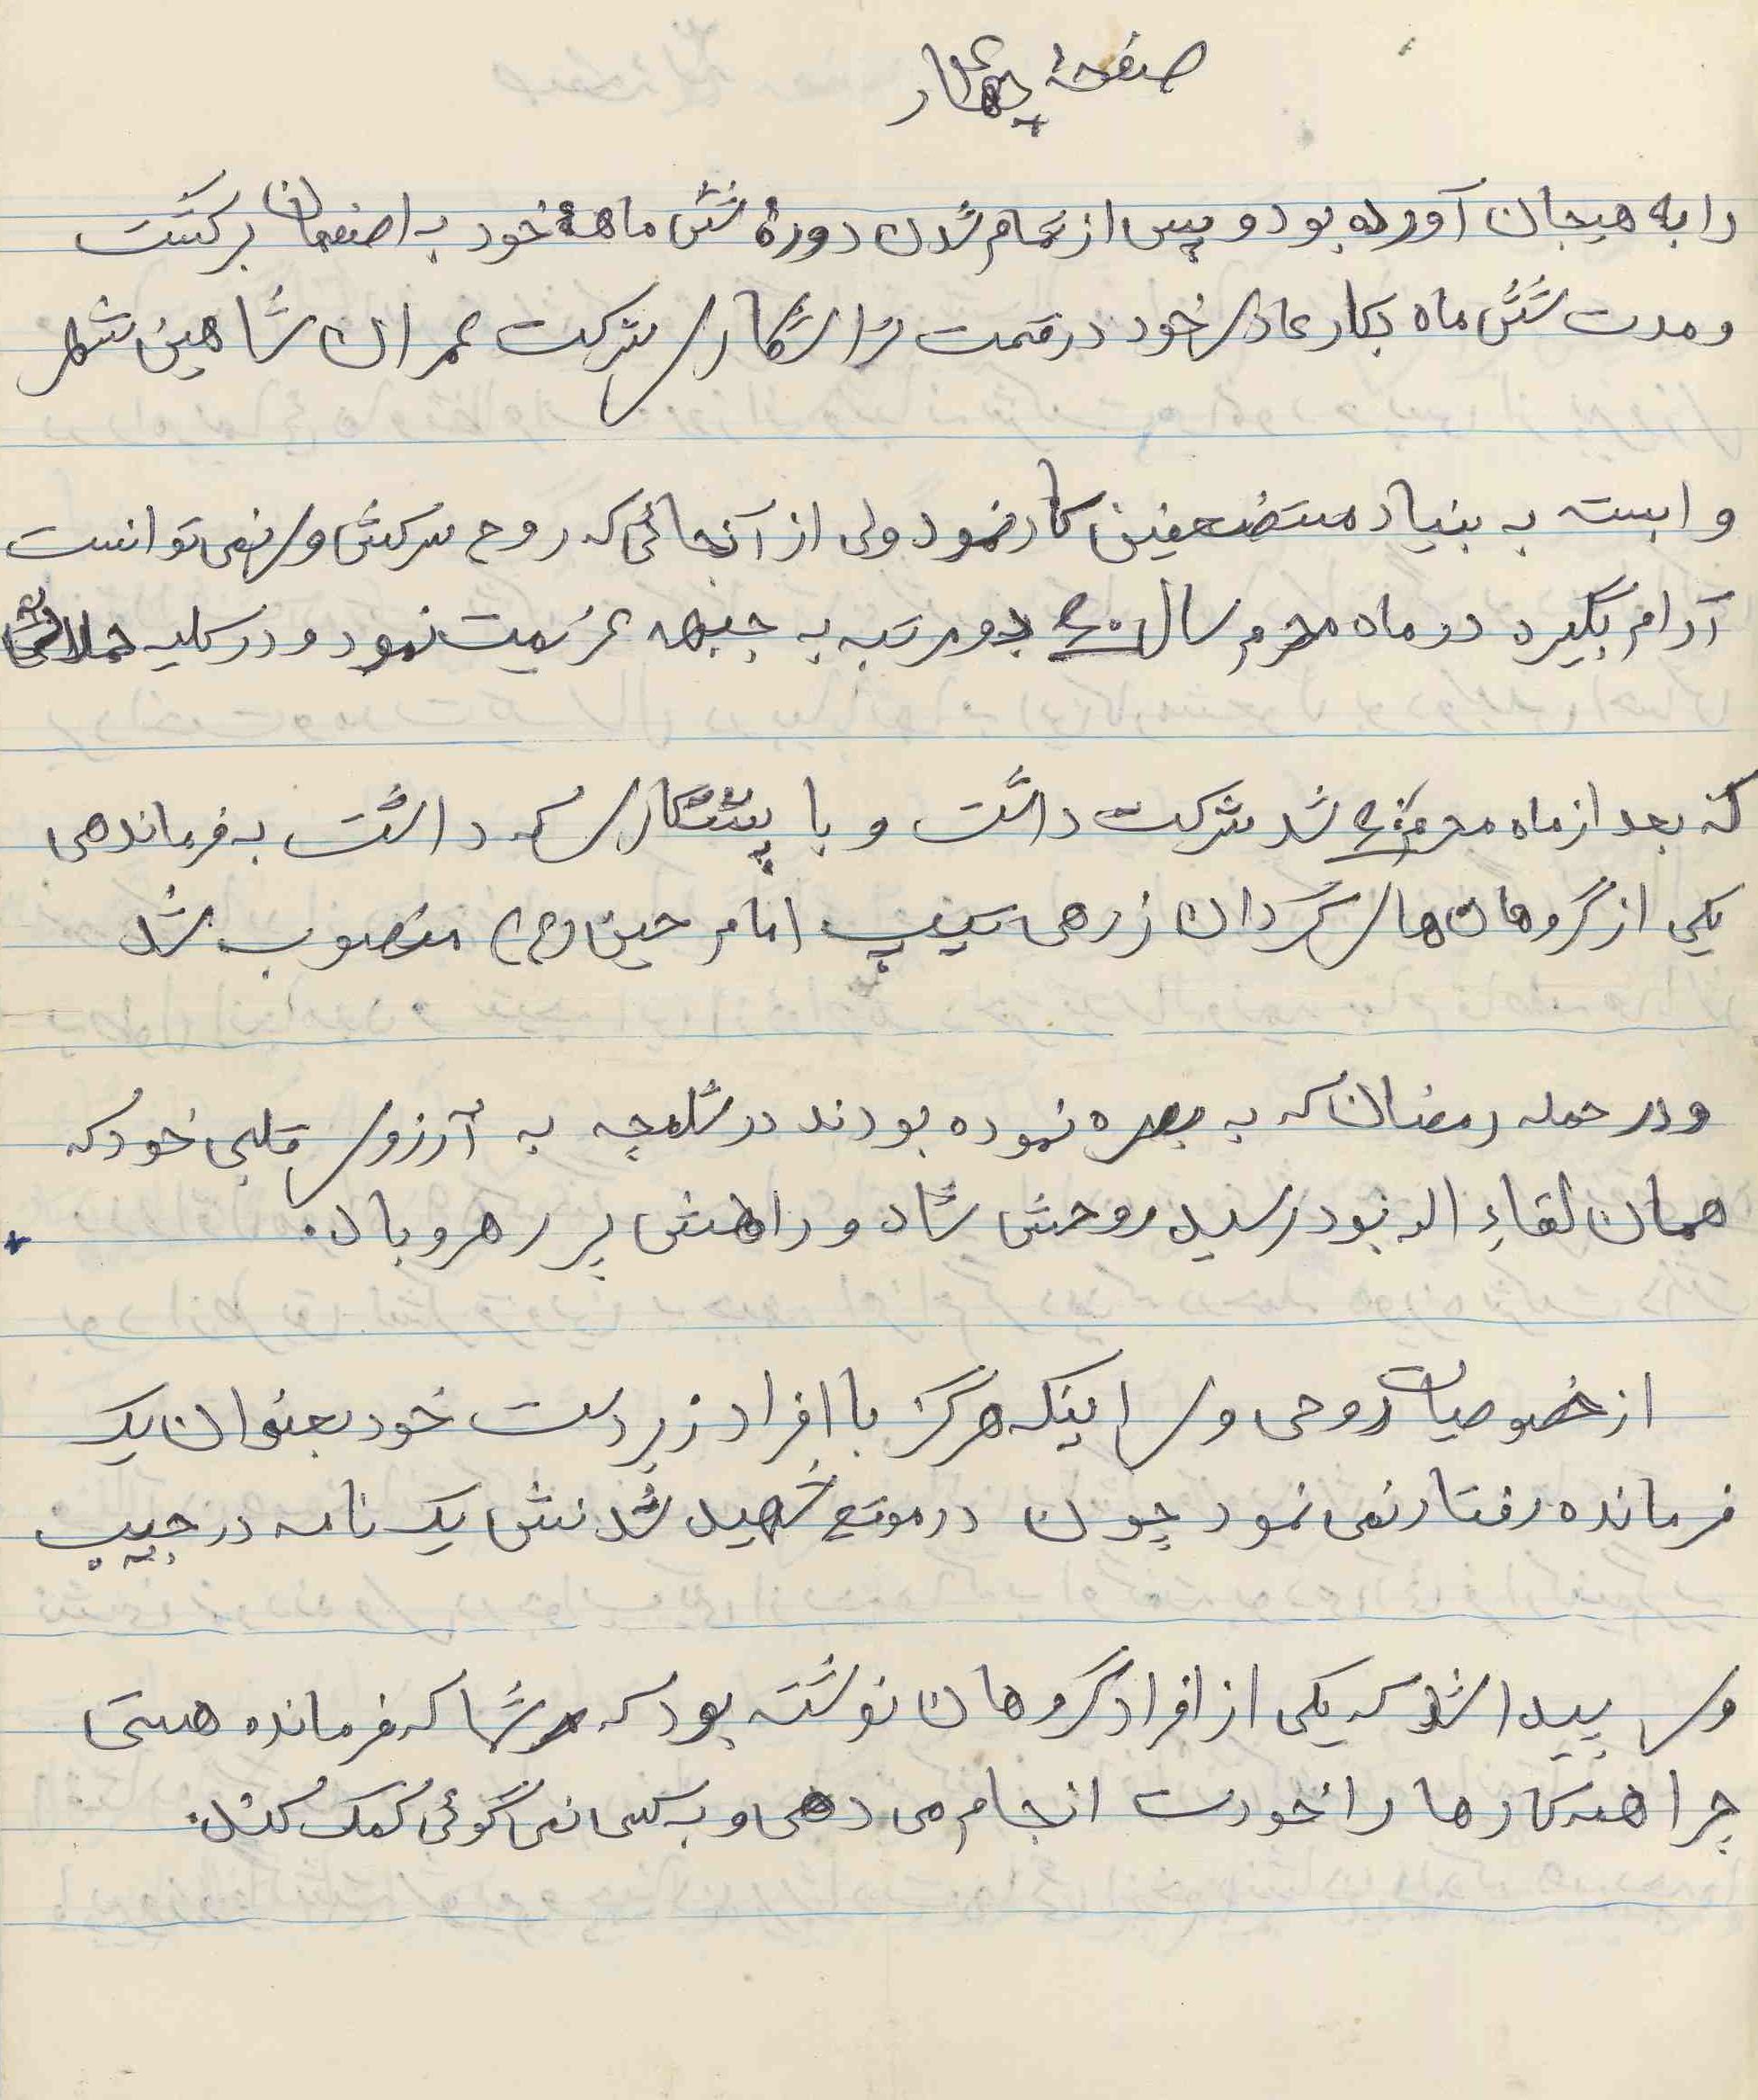 صفحهٔ چهار
را به هیجان آورده بود و پس از تمام شدن دورهٔ شش ماههٔ خود به اصفهان برگشت
و مدت شش ماه بکار عادی خود در قسمت تراشکاری شرکت عمران شاهین شهر
وابسته به بنیاد مستضعفین کار نمود ولی از آنجائی که روح سرکش وی نمی توانست
آرام بگیرد در ماه محرم سال ۶۰ دو مرتبه به جبهه عزیمت نمود و در کلیه حملاتی
که بعد از ماه محرم ۶۰ شد شرکت داشت و با پشتکاری که داشت به فرماندهی
یکی از گروهان های گردان زرهی تیپ امام حسین (ع) منصوب شد
و در حمله رمضان که به بصره نموده بودند در شلمچه به آرزوی قلبی خود که
همان لقاءِ اله بود رسید روحش شاد و راهش پر رهرو باد.
از خصوصیات روحی وی اینکه هرگز با افراد زیر دست خود بعنوان یک
فرمانده رفتار نمی نمود چون در موقع شهید شدنش یک نامه در جیب
وی پیدا شد که یکی از افراد گروهان نوشته بود که شما که فرمانده هستی
چرا همه کارها را خودت انجام می دهی و به کسی نمی گوئی کمک کند.